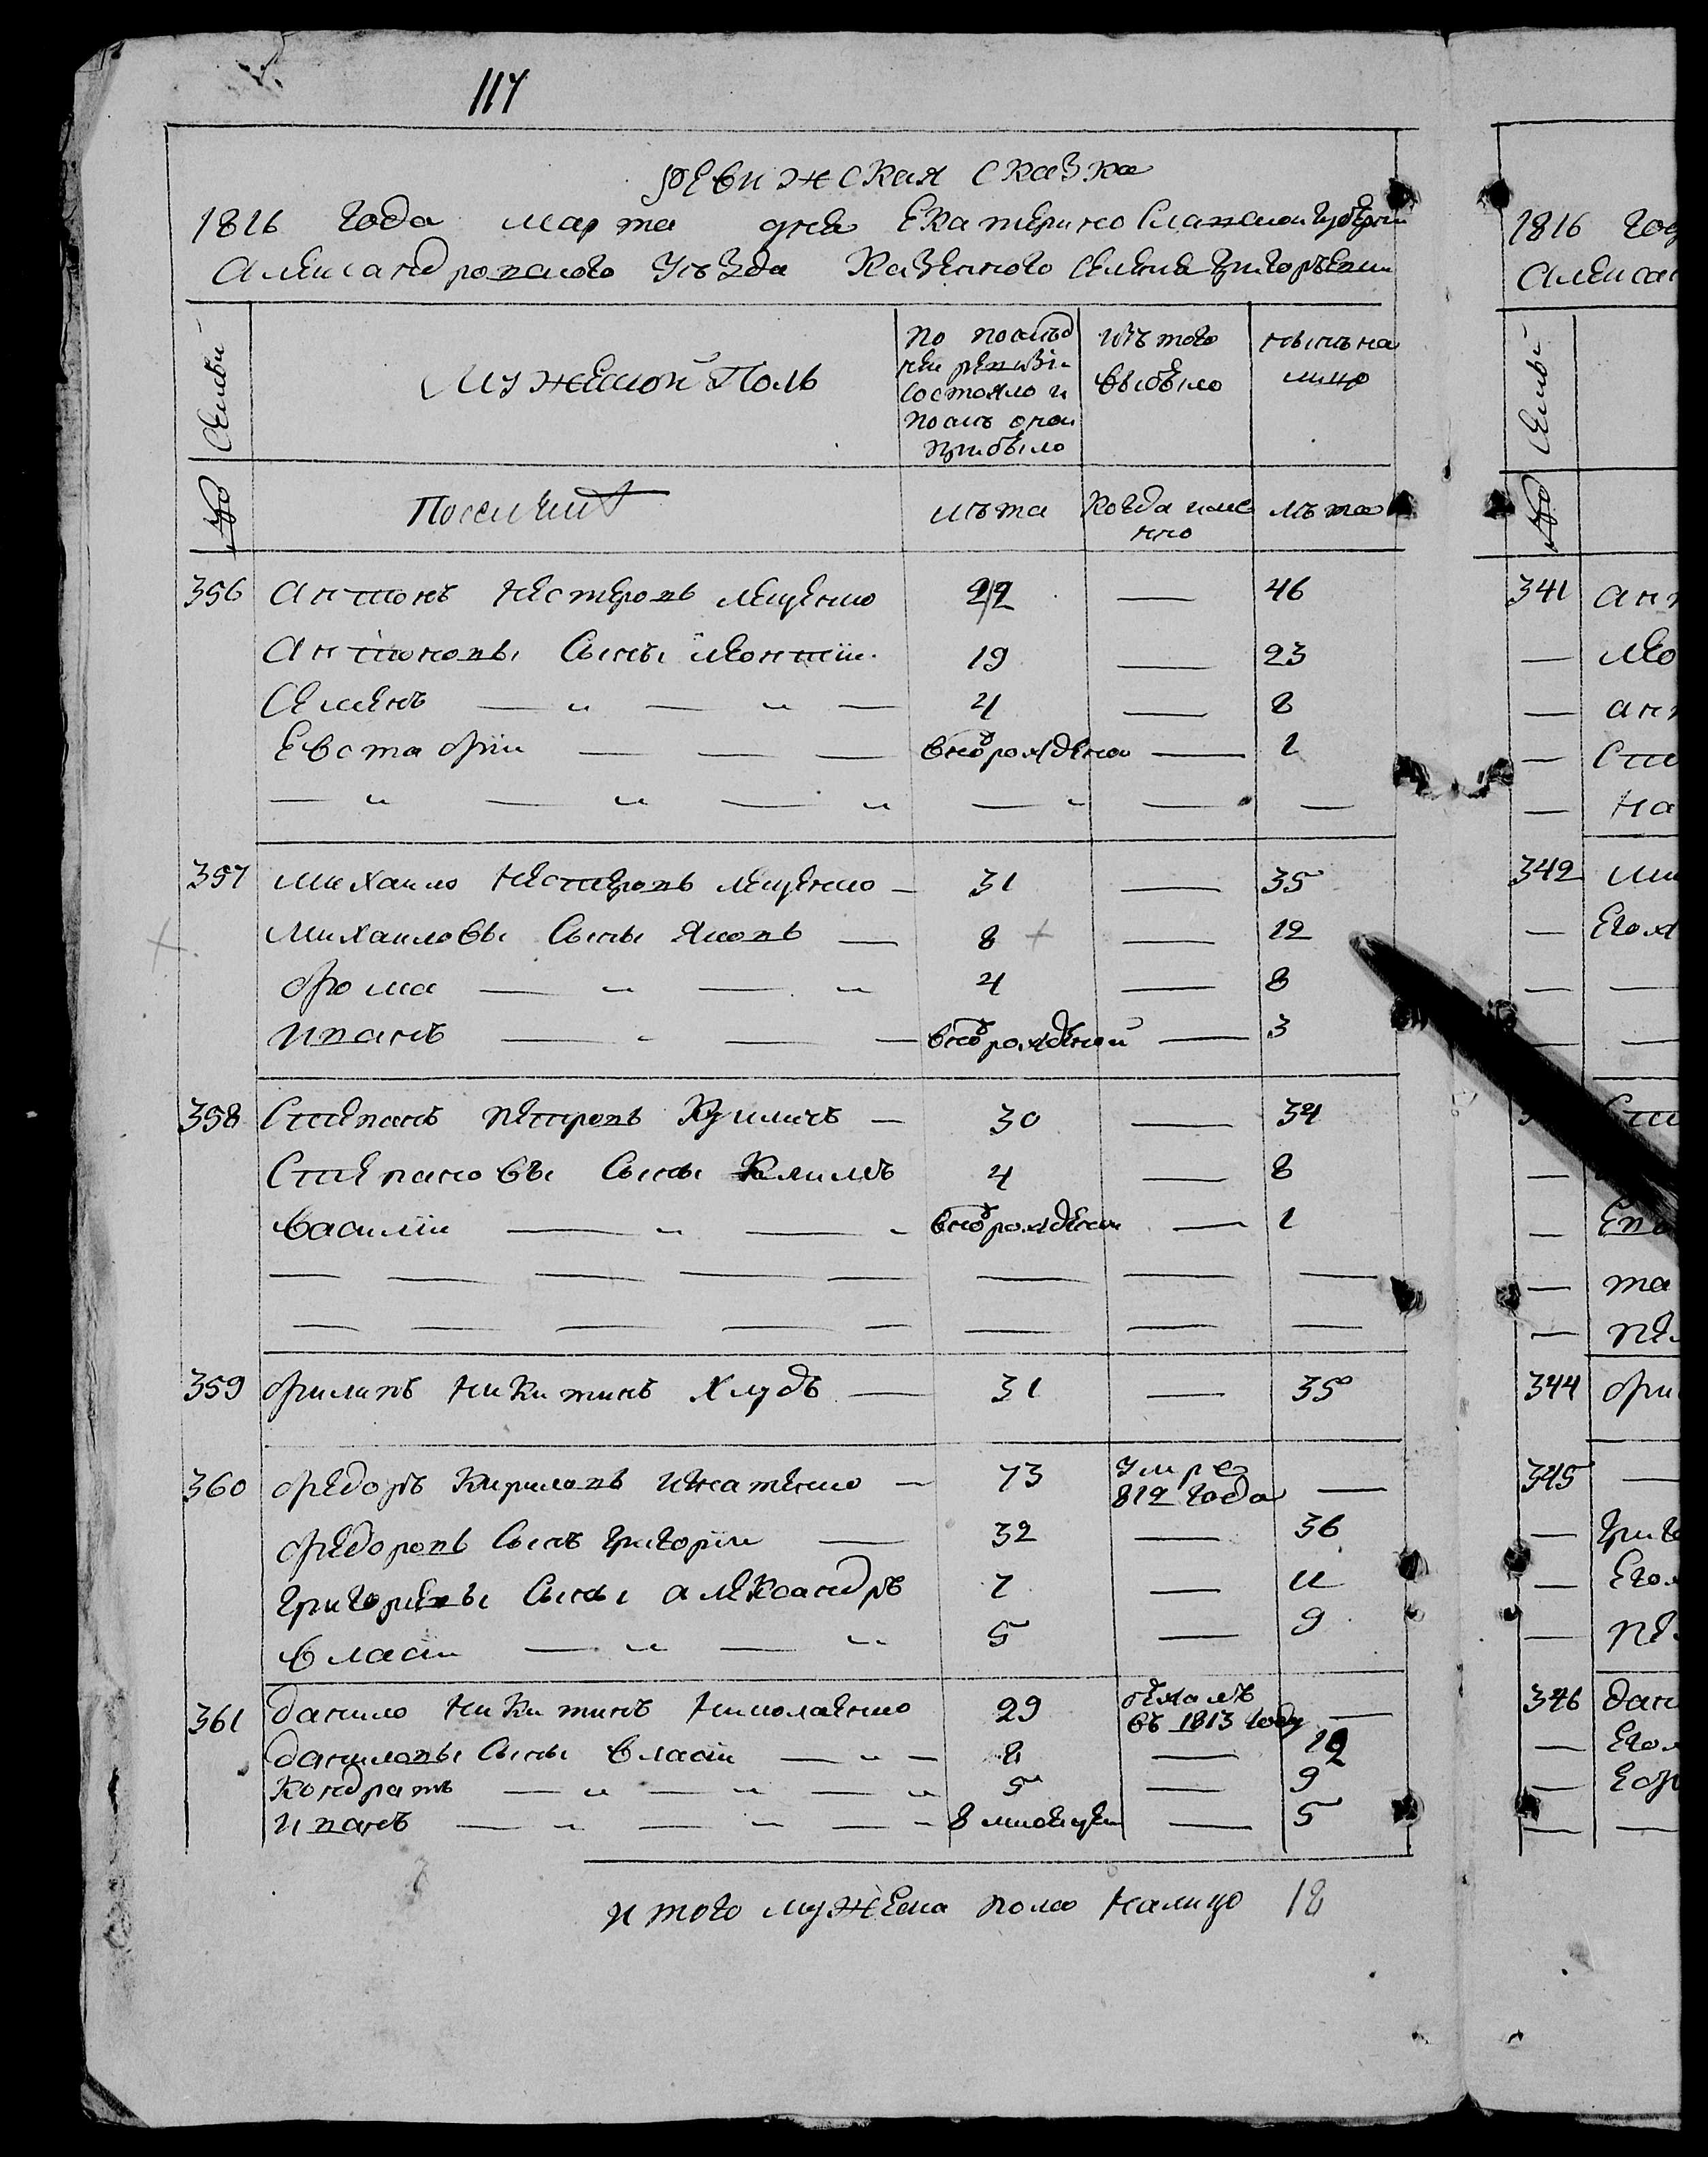 117
Ревижская сказка
1816 Года марта дня Екатеринославской губернии
Александровского Уѣзда Казенного селения Григорьевки
Семьи
Мужеской Полъ
По послѣд
ней ревизіи
состояло и
послѣ оной
прибыло
Изъ того
выбыло
нынѣ на
лицо
№
Поселянѣ
лѣта
Когда име
нно
лѣта
356 Антонъ Нестеровъ Лещенко 42 — 46
Антоновы Сыны Леонтіи 19 — 23
Семенъ — „ — „ — 4 — 8
Евстафіи — — — вновьрожденои — 1
— „ — „ — „ — „ — —
357 Михаило Нестеровъ Лещенко — 31 — 35
Михаиловы Сыны Яковъ — 8 — 12
Фома — „ — „ 4 — 8
Иванъ — „ — — вновьрожденой — 3
358 Степанъ Петровъ Кушичъ — 30 — 34
Степановы Сыны Климъ 4 — 8
Василіи — „ — „ вновьрожденои — 1
— — — — — — — —
— — — — — — — —
359 Филипъ Никитинъ Хлудъ — 31 — 35
360 Федоръ Кириловъ Игнатенко — 73 Умре
812 года —
Федоровъ Сынъ Григоріи — 32 — 36
Григориевы Сыны Александръ 7 — 11
Власіи — „ — „ 5 — 9
361 Данило Никитинъ Николаенко 29 бѣжалъ
въ 1813 году —
Даниловы Сыны Власіи — „ — 8 — 12
Кондратъ — „ — „ — „ 5 — 9
Иванъ — „ — „ — „ 8 мисецеи — 5
Итого мужеска пола налицо 18
1816 Год
Алексан
Семьи
№
341 Ант
— Лео
— Ант
— Сте
— На
342 Ми
— Его ж
— —
— —
Сте
— та
344 Фи
345 —
— Григ
— Его ж
346 Дан
— Его ж
— Еф
— —